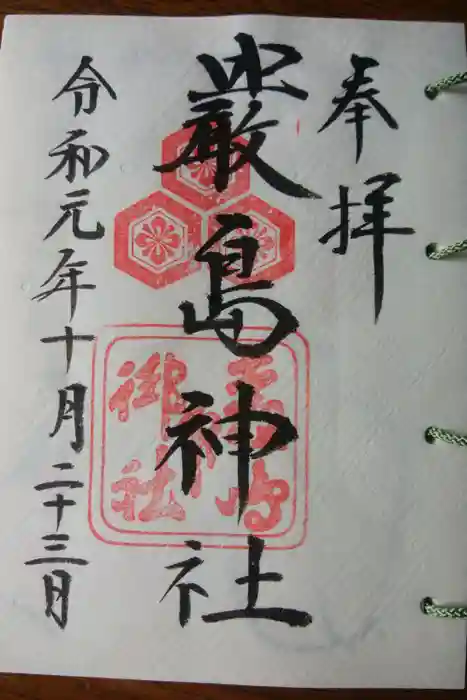 奉拝
厳島神社
令和元年十月二十三日